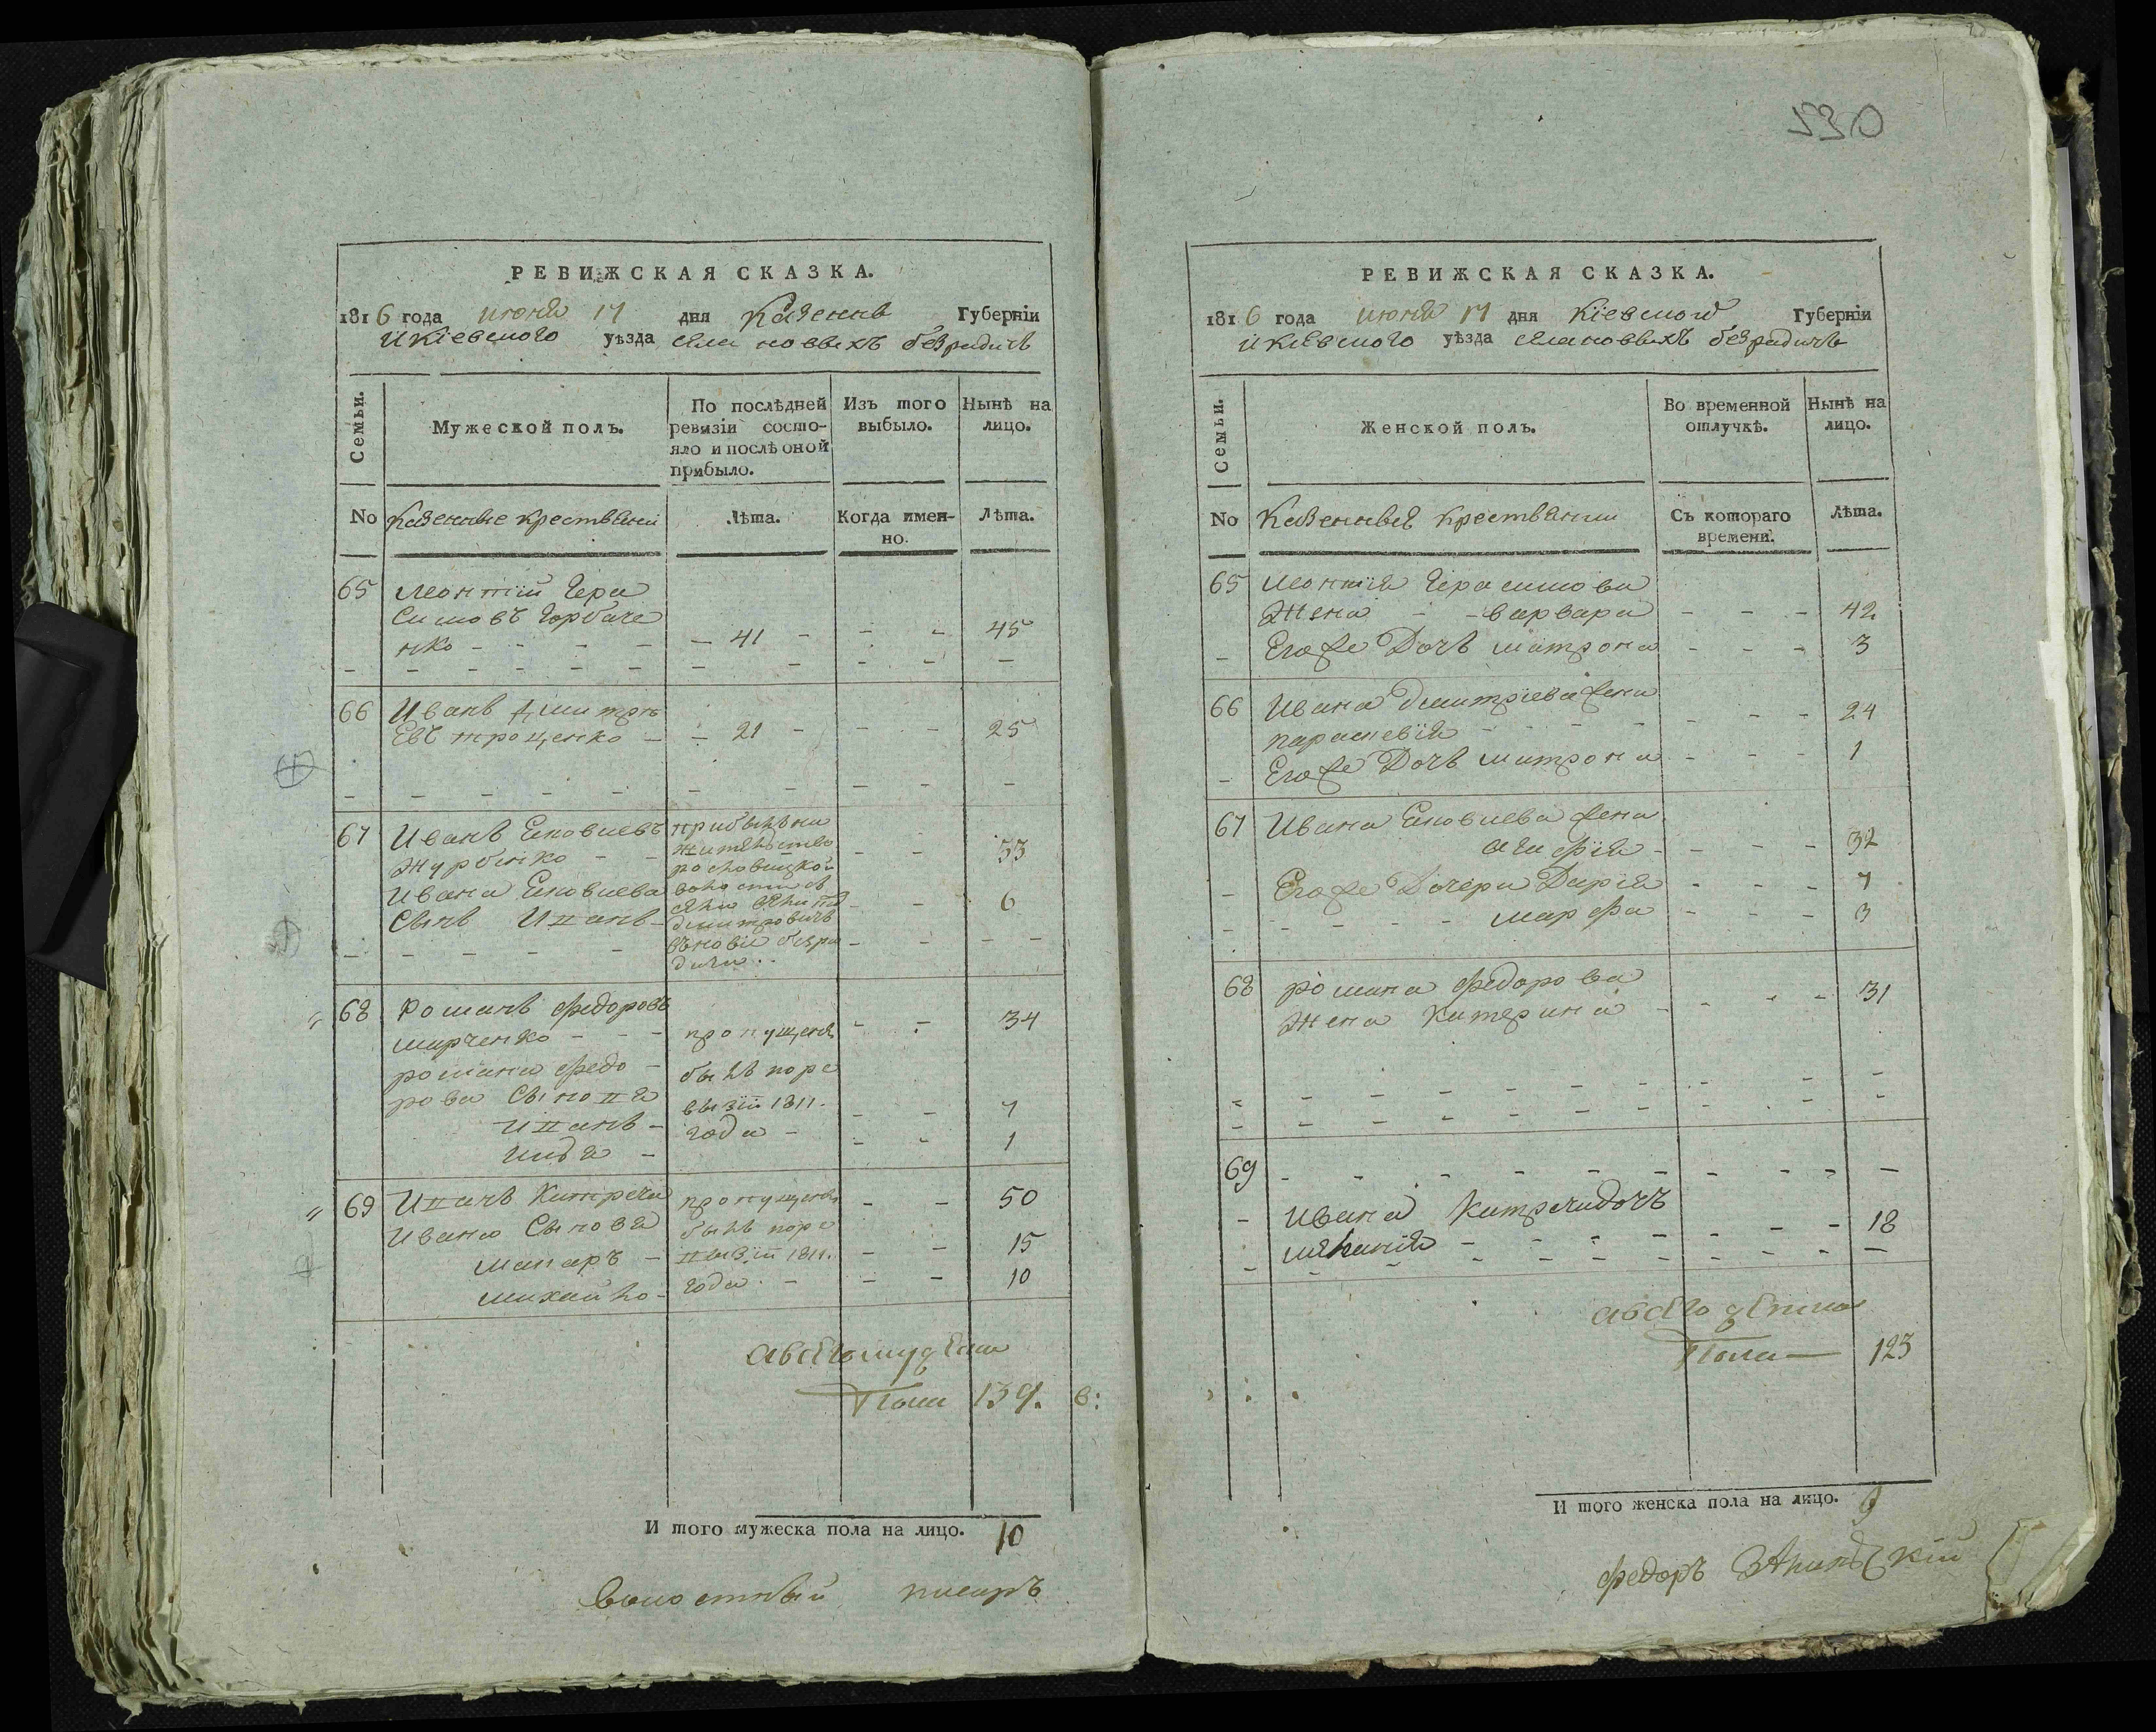 РЕВИЖСКАЯ СКАЗКА.
1816 года июня 17 дня Казеннв Губернїи
и кіевского уѣзда села новвхъ безрадичь
Семьи.
Мужеской полъ.
По послѣдней ревизїи состо-
яло и послѣ оной
прибыло.
Изъ того выбыло.
Нынѣ на лицо.
No
Казеннвые крествяни
Лѣта.
Когда имен-
но.
Лѣта.
65 Леонтій Гера
симовъ Горбаче
нко - - - - 41 - - - 45
66 Иванъ Дмитрі
евъ троценко - - 21 - - - 25
67 Иванъ Яковлевъ
Журбенко - - - - 53
Ивана Яковлева
Сынъ Иванъ - - - 6
прибылъ на
жителство
дмитровичъ
безра
дичи..
68 Романъ Федоровъ
марченко - - - - - 34
романа федо -
рова Сыновя
Иванъ - - - 7
Илья - - - 1
пропущенъ
былъ по ре
визіи 1811.
года -
69 Иванъ Китреча - - 50
Ивана Сыновя
макаръ - - - 15
михайло - - - 10
пропущенъ
былъ по ре
визіи 1811.
года -
Пола 139.
И того мужеска пола на лицо. 10
волостный писаръ
530
РЕВИЖСКАЯ СКАЗКА.
1816 года июня 17 дня Кіевской Губернїи
и кіевского уѣзда села новвхъ безрадичь
Семьи.
Женской полъ.
Во временной
отлучкѣ.
Нынѣ на
лицо.
No
Казеннвя крествянки
Съ котораго
времени.
Лѣта.
65 Леонтія Герасимова
Жена - - варвара - - - 42
Его же Дочь матрона - - - 3
66 Ивана Дмитріева жена
параскевія - - - 24
Его же Дочь матрона - - - 1
67 Ивана Яковлева жена
агафія - - - - 32
Его же Дочери Дарія - - - 7
марфа - - - 3
68 романа федорова
Жена катерина - - - - 31
69
Ивана Китречи дочъ
меланія - - - 18
Пола — 123
И того женска пола на лицо. 9
федоръ